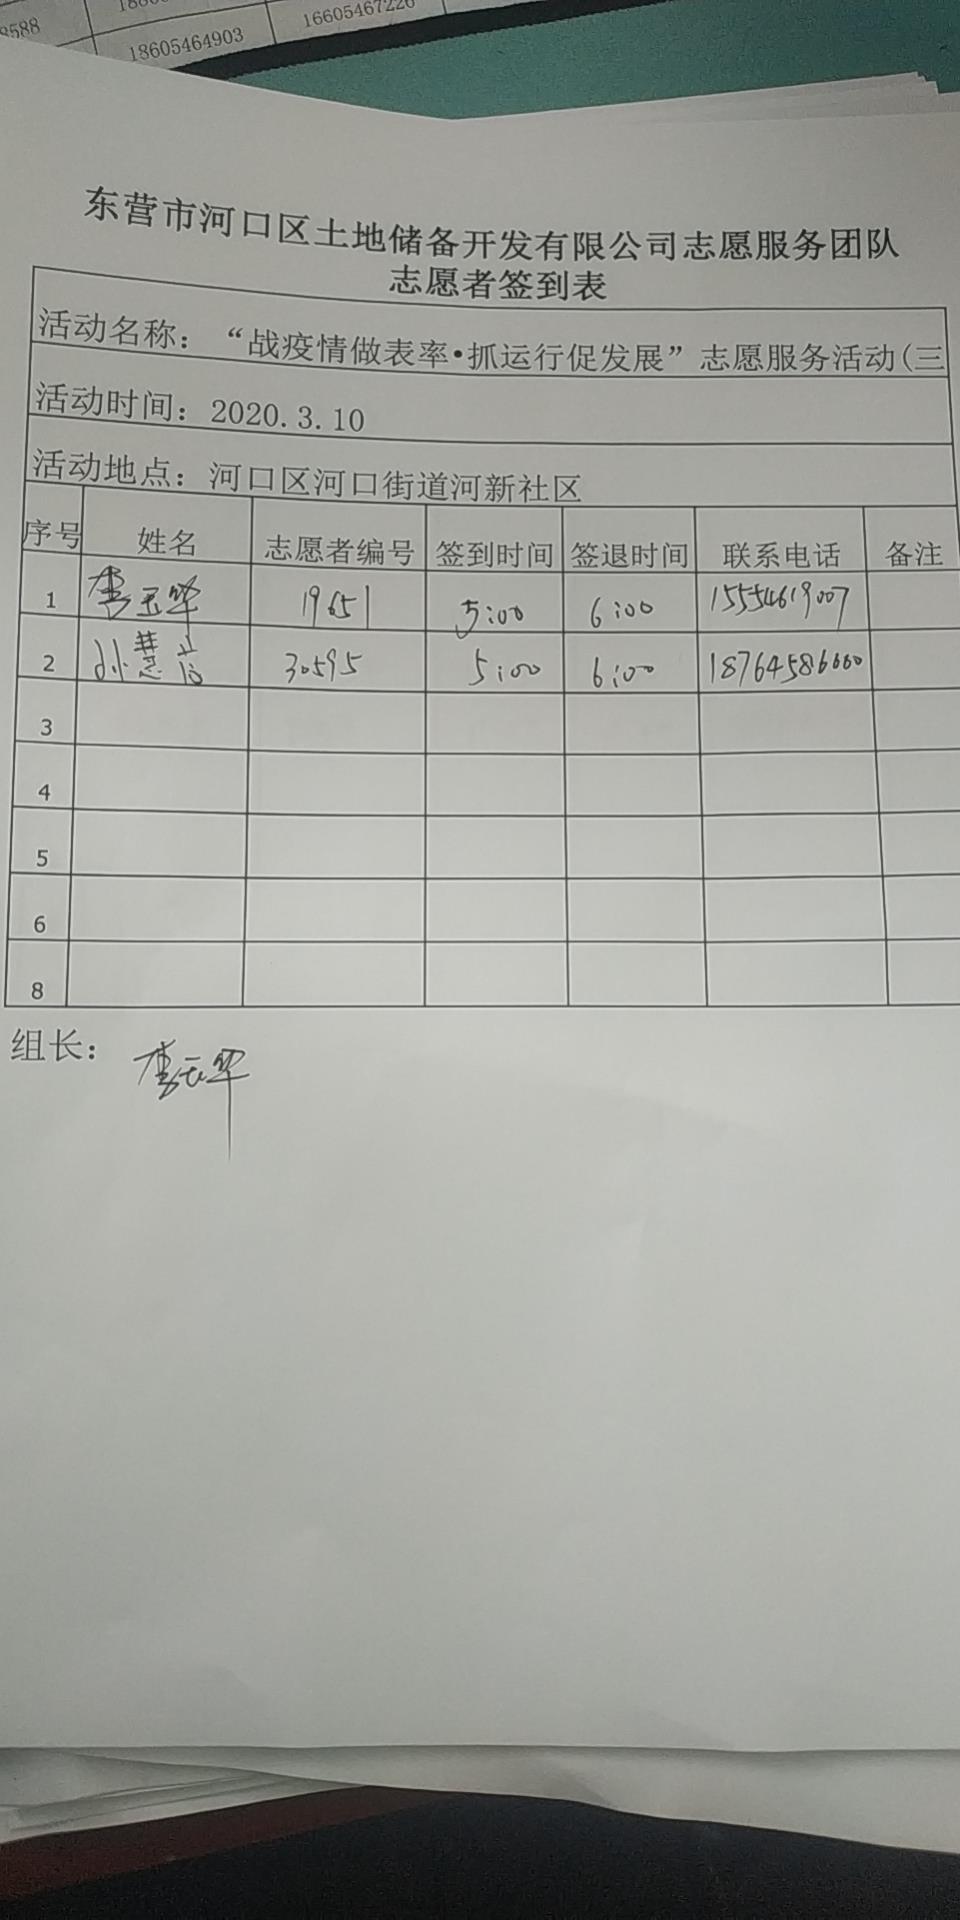 18605464903
东营市河口区土地储备开发有限公司志愿服务团队
志愿者签到表
活动名称：“战疫情做表率•抓运行促发展”志愿服务活动(三
活动时间：2020.3.10
活动地点：河口区河口街道河新社区
序号 姓名 志愿者编号 签到时间 签退时间 联系电话 备注
1 李玉华 19651 5:00 6:00 15554619007
2 孙慧 30595 5:00 6:00 18764586660
3
4
5
6
8
组长：李玉华